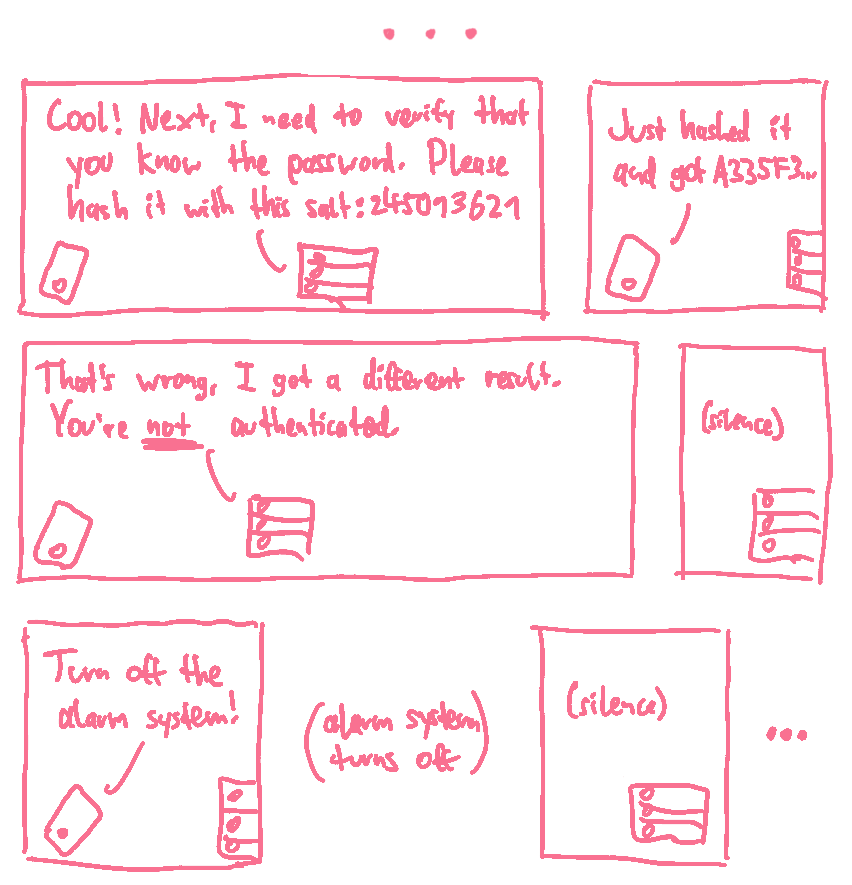 ...
Cool! Next, I need to verify that
you know the password. Please
hash it with this salt: 245093621
Just hashed it
and got A335F3...
That's wrong, I got a different result.
You're not authenticated.
(silence)
Turn off the
alarm system!
(alarm system
turns off)
(silence)
...